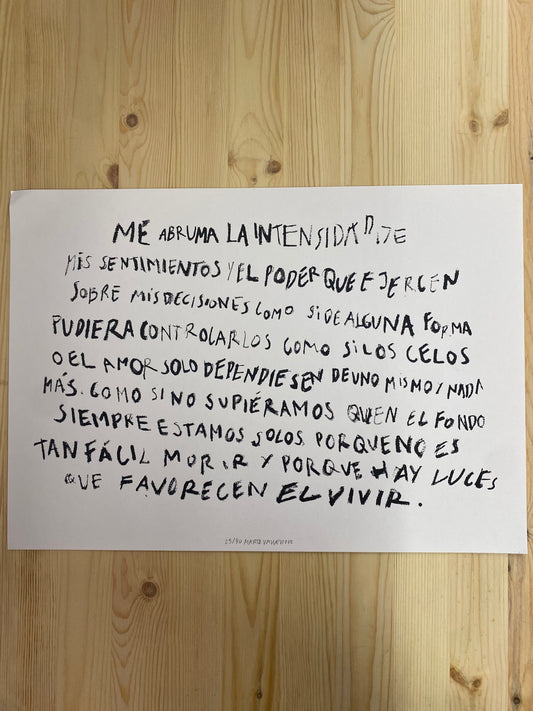 ME ABRUMA LA INTENSIDAD DE
MIS SENTIMIENTOS Y EL PODER QUE EJERCEN
SOBRE MIS DECISIONES COMO SI DE ALGUNA FORMA
PUDIERA CONTROLARLOS COMO SI LOS CELOS
O EL AMOR SOLO DEPENDIESEN DE UNO MISMO Y NADA
MÁS. COMO SI NO SUPIÉRAMOS QUE EN EL FONDO
SIEMPRE ESTAMOS SOLOS. PORQUE NO ES
TAN FÁCIL MORIR Y PORQUE HAY LUCES
QUE FAVORECEN EL VIVIR.
MARTA